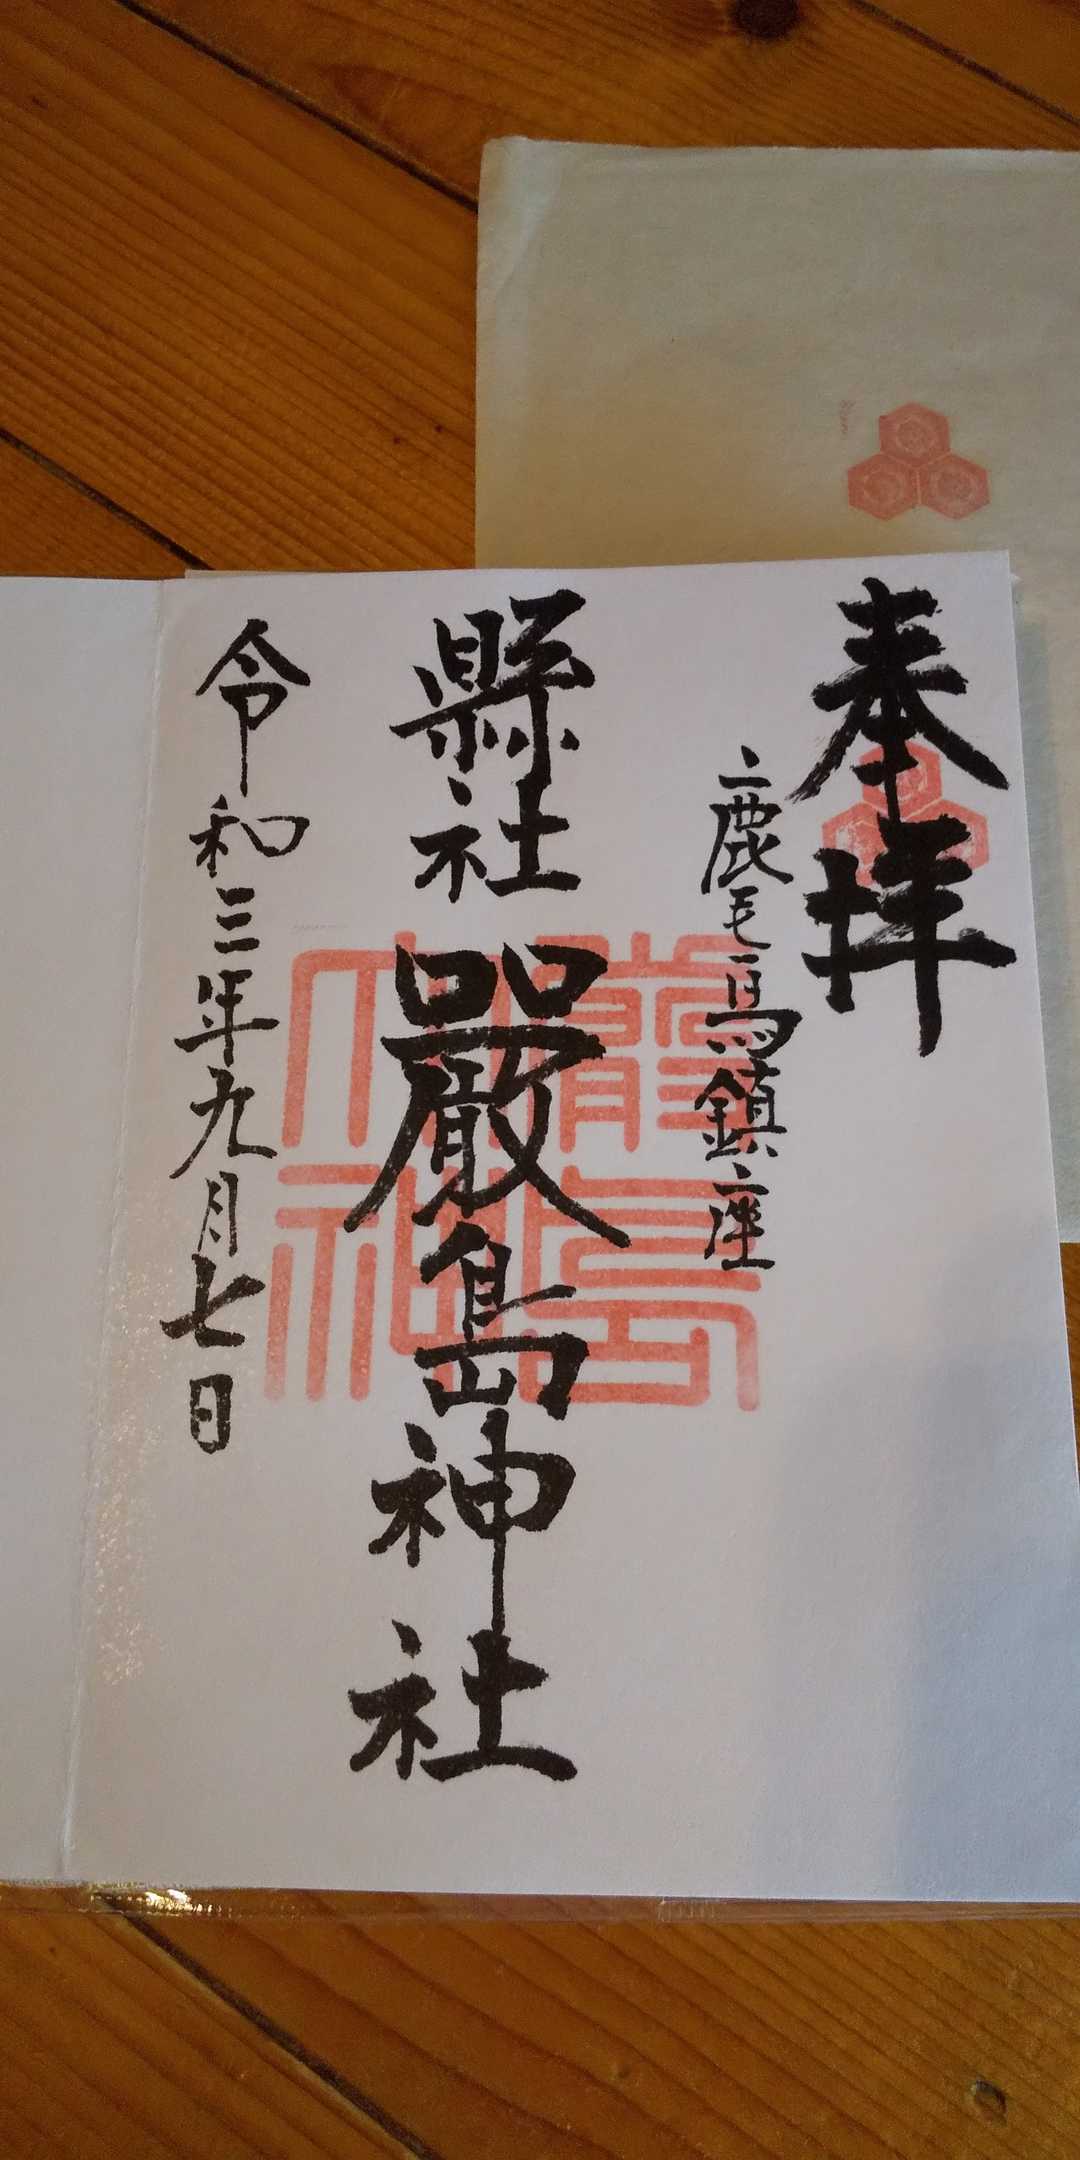 奉拝
鹿毛馬鎮座
縣社 嚴島神社
令和三年九月七日